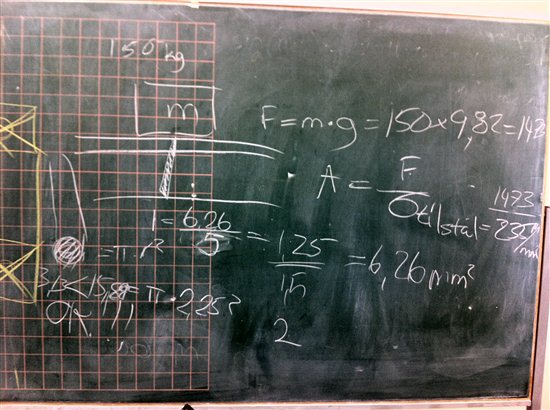 150 kg
m
F = m·g = 150×9,82 = 147
A = F / σ till stål = 1473 / 235 N/mm²
1 = 6,26 / 5 = 1,25 / 1,5 = 6,26 mm²
= π·r²
< 15,8 = π·2,25²
OK!!!
2